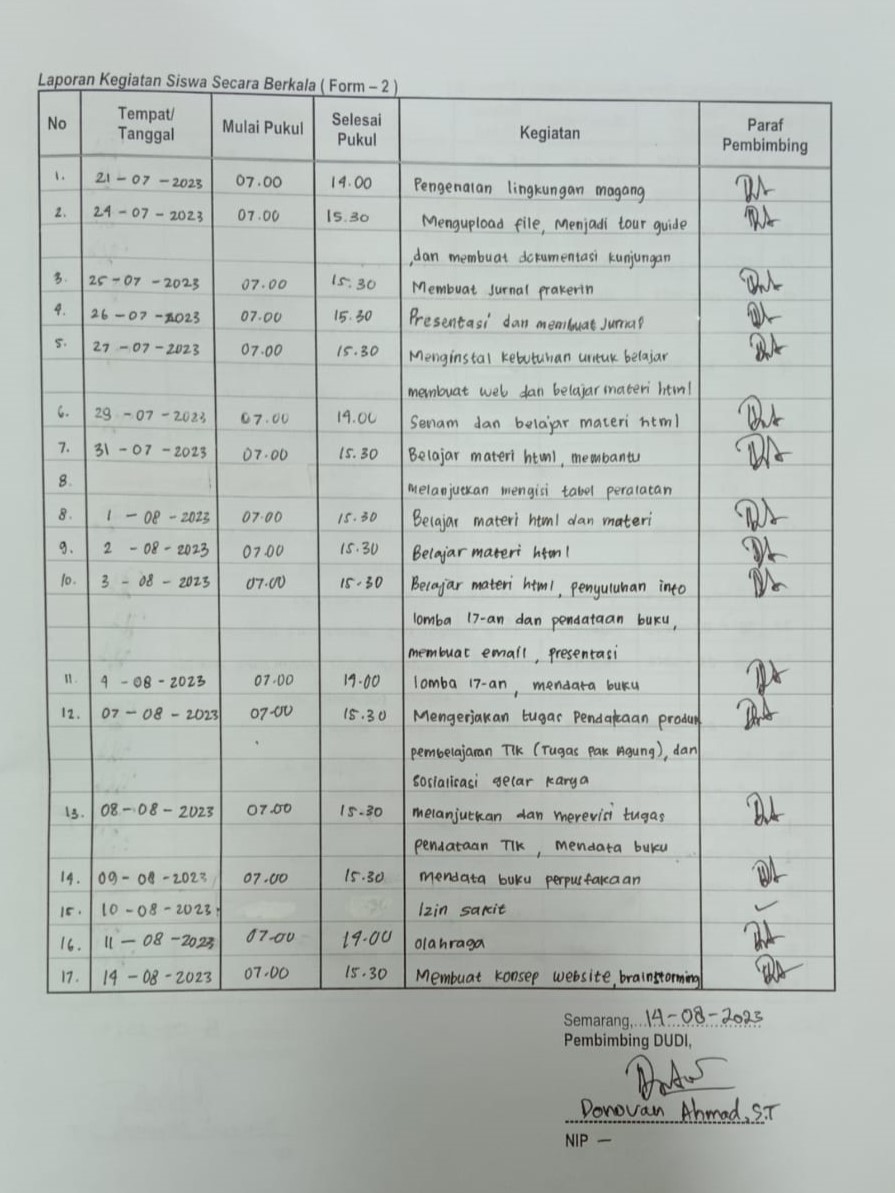 Laporan Kegiatan Siswa Secara Berkala ( Form – 2 )
No Tempat/ Tanggal Mulai Pukul Selesai Pukul Kegiatan Paraf Pembimbing
1. 21 - 07 - 2023 07.00 14.00 Pengenalan lingkungan magang
2. 24 - 07 - 2023 07.00 15.30 Mengupload file, Menjadi tour guide
,dan membuat dokumentasi kunjungan
3. 25 - 07 - 2023 07.00 15.30 Membuat Jurnal prakerin
4. 26 - 07 - 2023 07.00 15.30 Presentasi dan membuat Jurnal
5. 27 - 07 - 2023 07.00 15.30 Menginstal kebutuhan untuk belajar
membuat web dan belajar materi html
6. 29 - 07 - 2023 07.00 14.00 Senam dan belajar materi html
7. 31 - 07 - 2023 07.00 15.30 Belajar materi html, membantu
8. melanjutkan mengisi tabel peralatan
8. 1 - 08 - 2023 07.00 15.30 Belajar materi html dan materi
9. 2 - 08 - 2023 07.00 15.30 Belajar materi html
10. 3 - 08 - 2023 07.00 15.30 Belajar materi html, penyuluhan info
lomba 17-an dan pendataan buku,
membuat email, presentasi
11. 4 - 08 - 2023 07.00 14.00 lomba 17-an, mendata buku
12. 07 - 08 - 2023 07.00 15.30 Mengerjakan tugas Pendataan produk
pembelajaran TIk (Tugas Pak Agung), dan
sosialisasi gelar karya
13. 08 - 08 - 2023 07.00 15.30 melanjutkan dan merevisi tugas
pendataan TIk, Mendata buku
14. 09 - 08 - 2023 07.00 15.30 mendata buku perpustakaan
15. 10 - 08 - 2023 Izin sakit
16. 11 - 08 - 2023 07.00 14.00 olahraga
17. 14 - 08 - 2023 07.00 15.30 Membuat konsep website, brainstorming
Semarang, 14-08-2023
Pembimbing DUDI,
Donovan Ahmad, S.T
NIP –